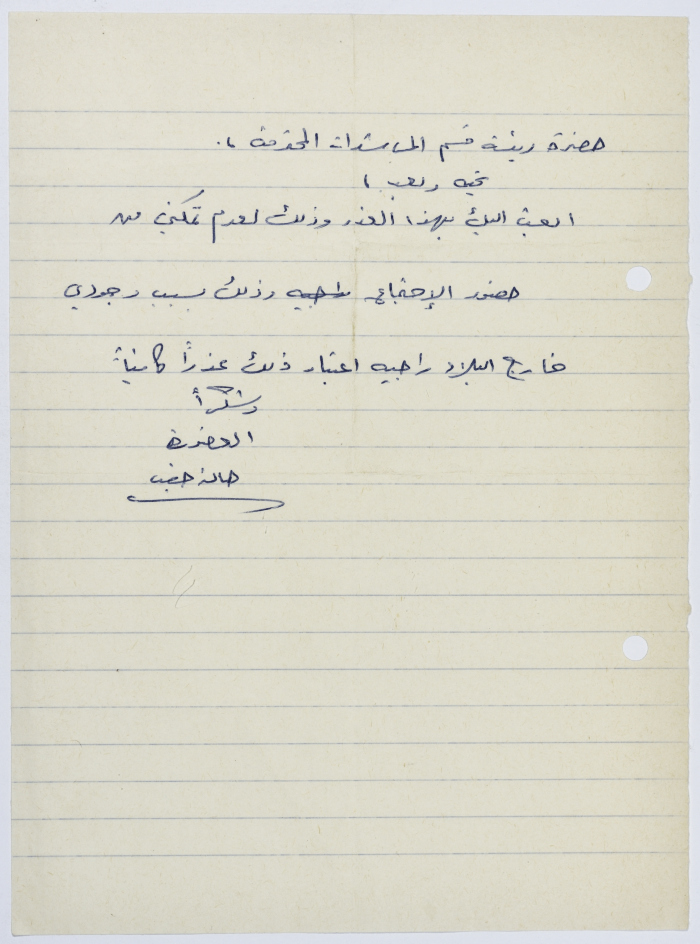 حضرة رئيسة قسم المرشدات المحترمة ،.
تحية وبعد ،
ابعث اليك بهذا العذر وذلك لعدم تمكني من
حضور الإجتماع وذلك بسبب وجودي
خارج البلاد راجيه اعتبار ذلك عذراً كافياً
وشكراً
العضوة
هالة